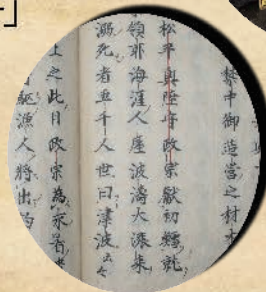 禁中御造営之材木
松平奥陸守政宗獻初鱈就
領所海涯人屋波濤大漲来
溺死者五千人世曰津波云々
上之此日政宗為求肴
駈漁人将出釣